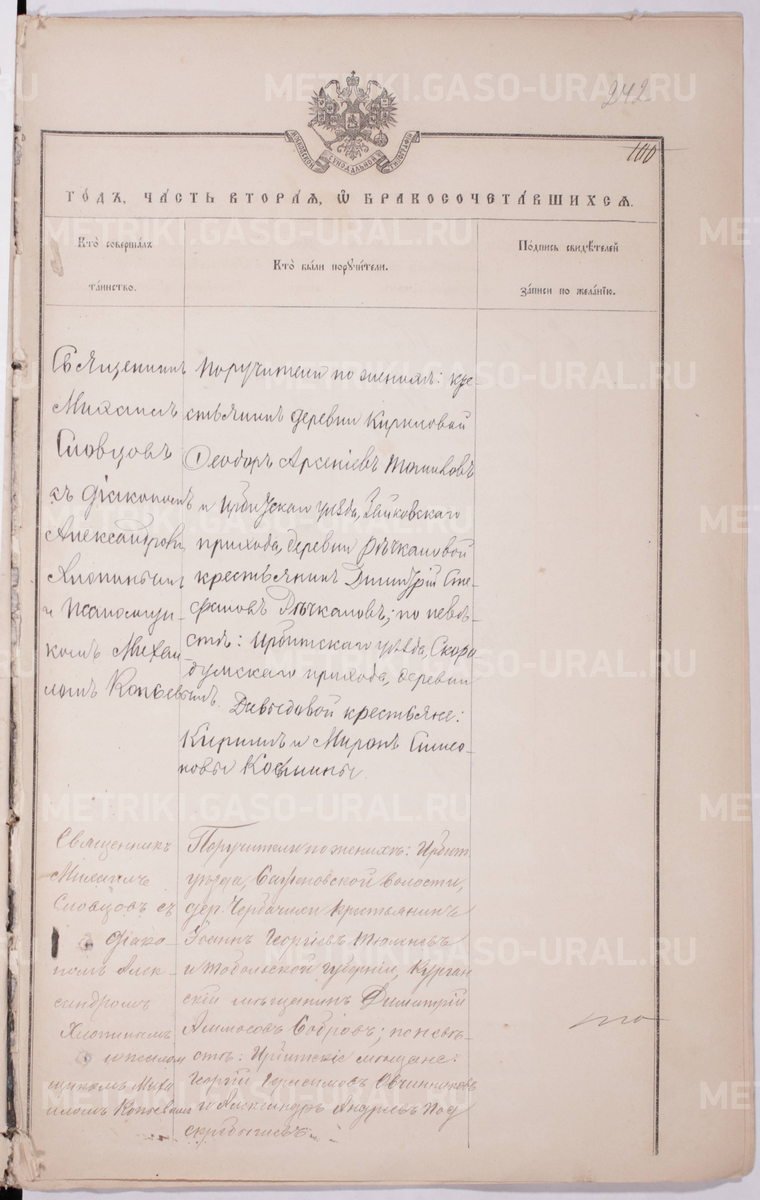 242
100
ГОДЪ, ЧАСТЬ ВТОРАЯ, Ѡ БРАКОСОЧЕТАВШИХСЯ.
Кто совершалъ
таинство.
Кто были поручители.
Подпись свидѣтелей
записи по желанію.
Священникъ
Михаилъ
Словцовъ
съ діакономъ
Александромъ
Хлопинымъ
и псаломщи-
комъ Михаи
ломъ Копьевымъ
Поручители по женихѣ: кре-
стьянинъ деревни Кириловой
Ѳеодоръ Арсеніевъ
и Ирбитскаго уѣзда, Зайковскаго
прихода, деревни Рѣчкаловой
крестьянинъ Димитрій Сте-
фановъ Рѣчкаловъ; по невѣ-
стѣ: Ирбитскаго уѣзда, Скоро
думскаго прихода, деревни
Давыдовой крестьяне:
Кириллъ и Миронъ Симео-
новы Косьмины.
Священникъ
Михаилъ
Словцовъ съ
діако-
номъ Алек-
сандромъ
Хлопинымъ
и псалом
щикомъ Миха
иломъ Копьевымъ
Поручители по женихѣ: Ирбит.
уѣзда, волости,
дер. крестьянинъ
Георгіевъ
и Тобольской губерніи, Курган
скій мѣщанинъ Димитрій
Аммосовъ; по невѣ-
стѣ: Ирбитскіе мѣщане:
Георгій Герасимовъ Овчинниковъ
и Александръ Андреевъ Под
METRIKI.GASO-URAL.RU